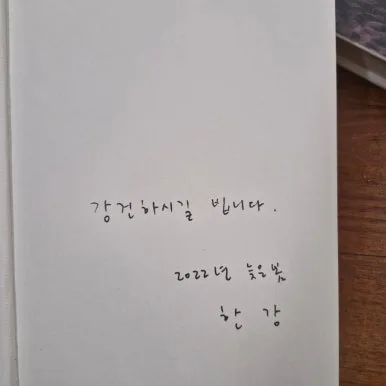 강건하시길 빕니다.
2022년 늦은봄
한 강